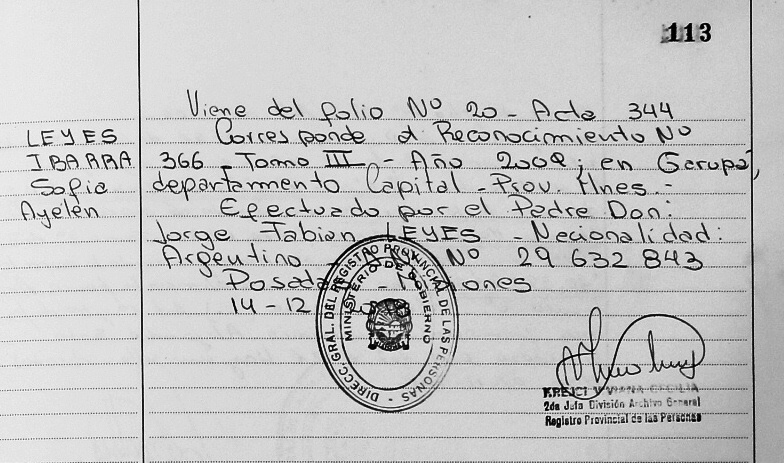 113
Viene del folio Nº 20 - Acta 344
LEYES
Corresponde al Reconocimiento Nº
IBARRA
366 - Tomo III - Año 2008; en Garupá,
Sofia
departamento Capital - Prov. Mnes. -
Ayelén
Efectuado por el Padre Don:
Jorge Fabian LEYES - Nacionalidad:
Argentino - Nº 29 632 843
Posadas - Misiones
14-12
DIRECC. GRAL. DEL REGISTRO PROVINCIAL DE LAS PERSONAS -
MINISTERIO DE GOBIERNO
KREJCI VIVIANA CECILIA
2da Jefa División Archivo General
Registro Provincial de las Personas